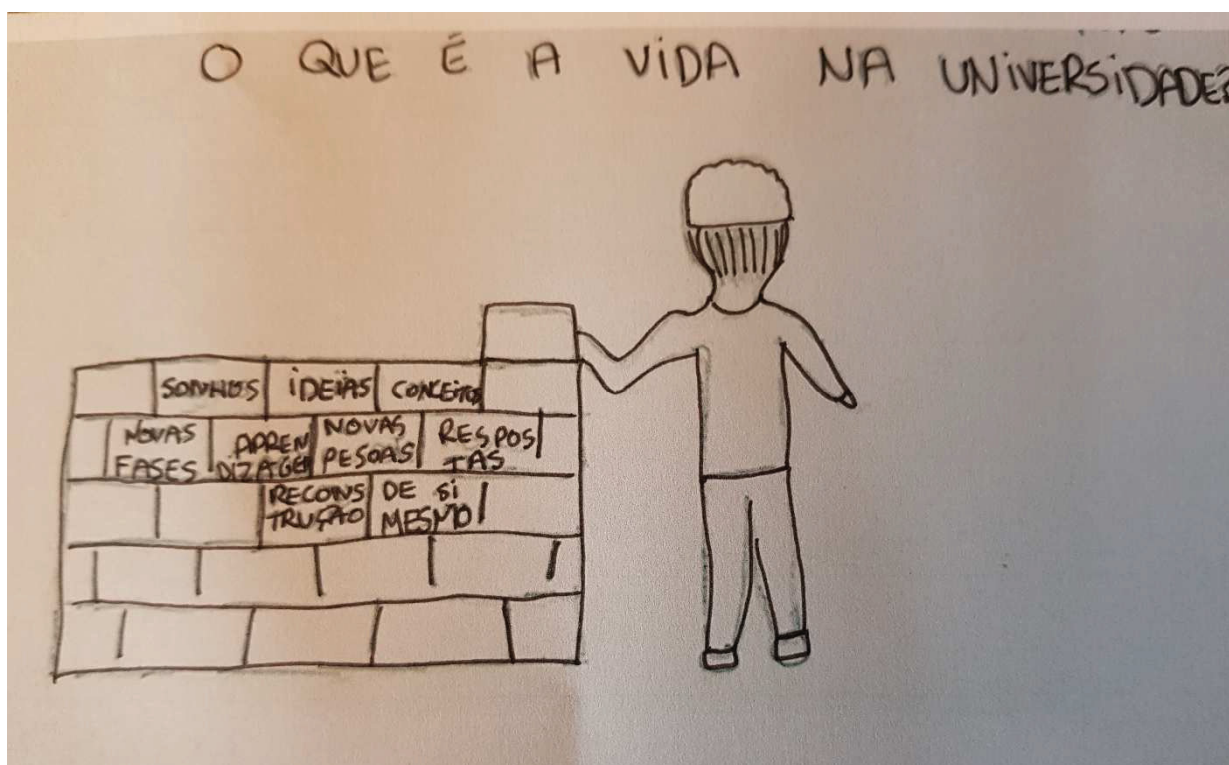 O QUE É A VIDA NA UNIVERSIDADE?
SONHOS IDEIAS CONCEITOS
NOVAS FASES
APREN
DIZAGEM
NOVAS
PESOAS
RESPOS
TAS
RECONS
TRUÇÃO
DE SI
MESMO